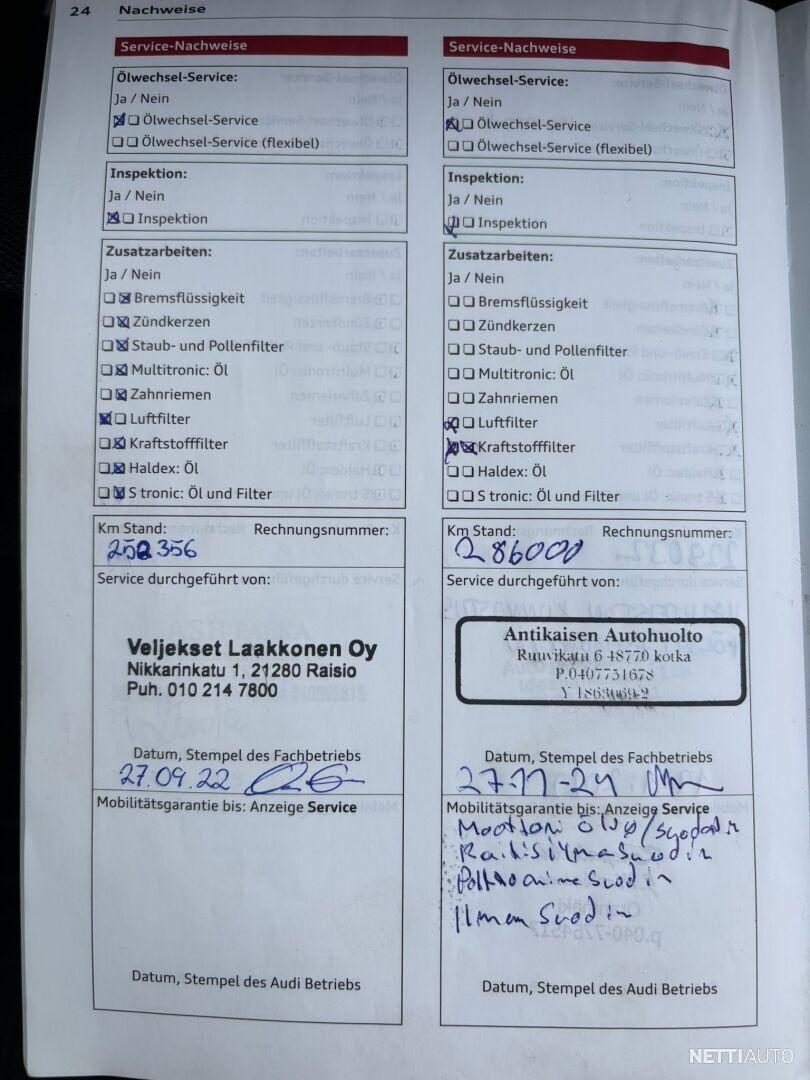 24 Nachweise
Service-Nachweise
Ölwechsel-Service:
Ja / Nein
Ölwechsel-Service
Ölwechsel-Service (flexibel)
Inspektion:
Ja / Nein
Inspektion
Zusatzarbeiten:
Ja / Nein
Bremsflüssigkeit
Zündkerzen
Staub- und Pollenfilter
Multitronic: Öl
Zahnriemen
Luftfilter
Kraftstofffilter
Haldex: Öl
S tronic: Öl und Filter
Km Stand: Rechnungsnummer:
252356
Service durchgeführt von:
Veljekset Laakkonen Oy
Nikkarinkatu 1, 21280 Raisio
Puh. 010 214 7800
Datum, Stempel des Fachbetriebs
27.09.22
Mobilitätsgarantie bis: Anzeige Service
Datum, Stempel des Audi Betriebs
Service-Nachweise
Ölwechsel-Service:
Ja / Nein
Ölwechsel-Service
Ölwechsel-Service (flexibel)
Inspektion:
Ja / Nein
Inspektion
Zusatzarbeiten:
Ja / Nein
Bremsflüssigkeit
Zündkerzen
Staub- und Pollenfilter
Multitronic: Öl
Zahnriemen
Luftfilter
Kraftstofffilter
Haldex: Öl
S tronic: Öl und Filter
Km Stand: Rechnungsnummer:
286000
Service durchgeführt von:
Antikaisen Autohuolto
Ruuvikatu 6 48770 kotka
P.0407731678
Y 1863069-2
Datum, Stempel des Fachbetriebs
27-11-24
Mobilitätsgarantie bis: Anzeige Service
Moottori öljy/suodatin
Raitisilmasuodin
Polttoainesuodin
Ilman Suodin
Datum, Stempel des Audi Betriebs
NETTIAUTO